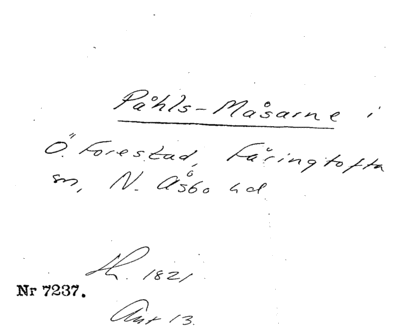 Påhls-Måsarne i
Ö. Forestad, Färingtofta
sn, N. Åsbo hd
1821
Nr 7237.
13.